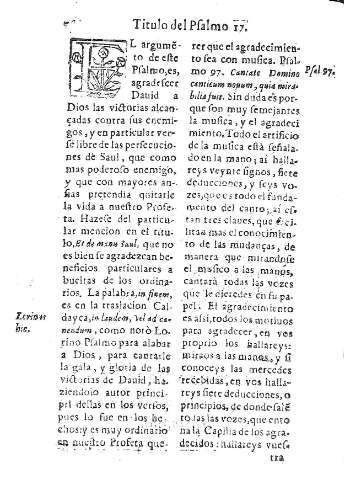 Titulo del Psalmo 17.
EL argumẽ-
to de este
Psalmo, es,
agradescer
Dauid a
Dios las victorias alcan-
çadas contra sus enemi-
gos, y en particular ver-
se libre de las persecucio-
nes de Saul, que como
mas poderoso enemigo,
y que con mayores an-
sias pretendia quitarle
la vida a nuestro Profe-
ta. Hazese del particu-
lar mencion en el titu-
lo, Et de manu Saul, que no
es bien se agradezcan be-
neficios particulares a
bueltas de los ordina-
rios. La palabra, in finem,
es en la traslacion Cal-
dayca, in laudem, vel ad ca-
nendum, como notò Lo-
rino Psalmo para alabar
a Dios, para cantarle
la gala, y gloria de las
victorias de Dauid, ha-
ziendolo autor princi-
pal dellas en los versos,
pues lo fue en los he-
chos: y es muy ordinario
en nuestro Profeta que-
Lorinus
hic.
rer que el agradecimien-
to sea con musica. Psal-
mo 97. Cantate Domino
canticum nouum, quia mira-
bilia fecit. Sin duda es por-
que son muy semejantes
la musica, y el agradeci-
miento. Todo el artificio
de la musica està señala-
do en la mano; ai halla-
reys veynte signos, siete
deducciones, y seys vo-
zes, que es todo el funda-
mento del canto; ai es-
tan tres claues, que faci-
litan mas el conocimien-
to de las mudanças, de
manera que mirandose
el musico a las manos,
cantarà todas las vozes
que le dieredes en su pa-
pel. El agradecimiento
es assi, todos los motiuos
para agradecer, en vos
proprio los hallareys:
miraos a las manos, y si
conoceys las mercedes
recebidas, en vos halla-
reys siete deducciones, o
principios, de donde salẽ
todas las vozes, que ento
na la Capilla de los agra-
decidos: hallareys vues-
tra
Psal. 97.